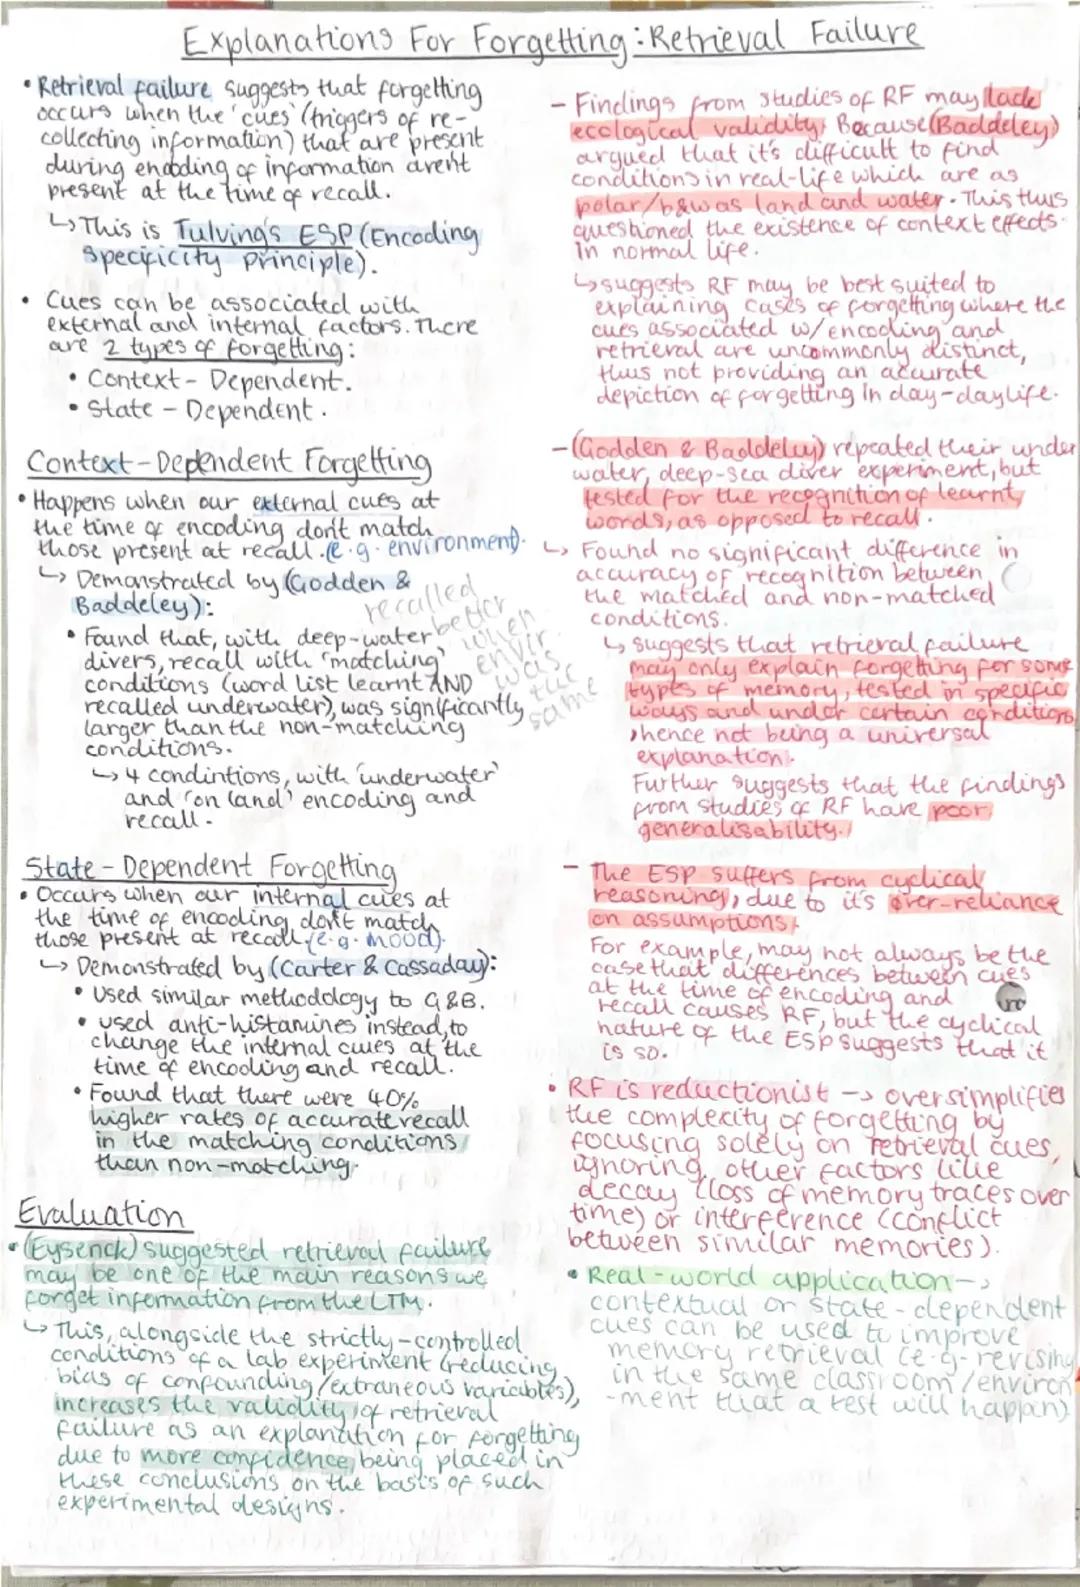 Explanations For Forgetting: Retrieval Failure
• Retrieval failure suggests that forgetting
occurs when the 'cues' (triggers of re-
collecting information) that are present
during encoding of information aren't
present at the time of recall.
↳ This is Tulving's ESP (Encoding
Specificity Principle).
• Cues can be associated with
external and internal factors. There
are 2 types of forgetting:
• Context - Dependent.
• State - Dependent.
Context - Dependent Forgetting
• Happens when our external cues at
the time of encoding don't match
those present at recall. (e.g. environment).
↳ Demonstrated by (Godden &
Baddeley):
• Found that, with deep-water
divers, recall with 'matching'
conditions (word list learnt AND
recalled underwater), was significantly
larger than the non-matching
conditions.
recalled
better
when
envir.
was
the
same
↳ 4 condintions, with 'underwater'
and 'on land' encoding and
recall.
State - Dependent Forgetting
• Occurs when our internal cues at
the time of encoding don't match
those present at recall. (e.g. mood).
↳ Demonstrated by (Carter & Cassaday):
• Used similar methodology to G&B.
• used anti-histamines instead, to
change the internal cues at the
time of encoding and recall.
• Found that there were 40%
higher rates of accurate recall
in the matching conditions
than non-matching.
Evaluation
• (Eysenck) suggested retrieval failure
may be one of the main reasons we
forget information from the LTM.
↳ This, alongside the strictly-controlled
conditions of a lab experiment (reducing
bias of confounding/extraneous variables),
increases the validity of retrieval
failure as an explanation for forgetting
due to more confidence being placed in
these conclusions on the basis of such
experimental designs.
- Findings from studies of RF may lack
ecological validity. Because (Baddeley)
argued that it's difficult to find
conditions in real-life which are as
polar/b&w as land and water. This thus
questioned the existence of context effects
in normal life.
↳ suggests RF may be best suited to
explaining cases of forgetting where the
cues associated w/encoding and
retrieval are uncommonly distinct,
thus not providing an accurate
depiction of forgetting in day-day life.
- (Godden & Baddeley) repeated their under
water, deep-sea diver experiment, but
tested for the recognition of learnt
words, as opposed to recall.
↳ Found no significant difference in
accuracy of recognition between
the matched and non-matched
conditions.
↳ suggests that retrieval failure
may only explain forgetting for some
types of memory, tested in specific
ways and under certain conditions
, hence not being a universal
explanation.
Further suggests that the findings
from studies of RF have poor
generalisability.
- The ESP suffers from cyclical
reasoning, due to it's over-reliance
on assumptions.
For example, may not always be the
case that differences between cues
at the time of encoding and
recall causes RF, but the cyclical
nature of the ESP suggests that it
is so.
• RF is reductionist → oversimplifies
the complexity of forgetting by
focusing solely on retrieval cues,
ignoring other factors like
decay (loss of memory traces over
time) or interference (conflict
between similar memories).
• Real-world application →
contextual or state-dependent
cues can be used to improve
memory retrieval (e.g. revising
in the same classroom/environ
-ment that a test will happen)